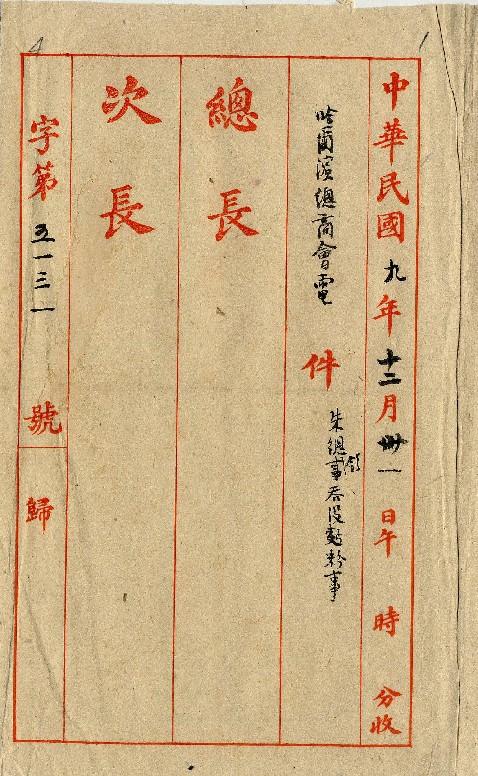 中華民國九年十二月卅一日午時分收
哈爾濱總商會電
件
朱總領事吞沒麵粉事
總長
次長
字第五一三一號
歸